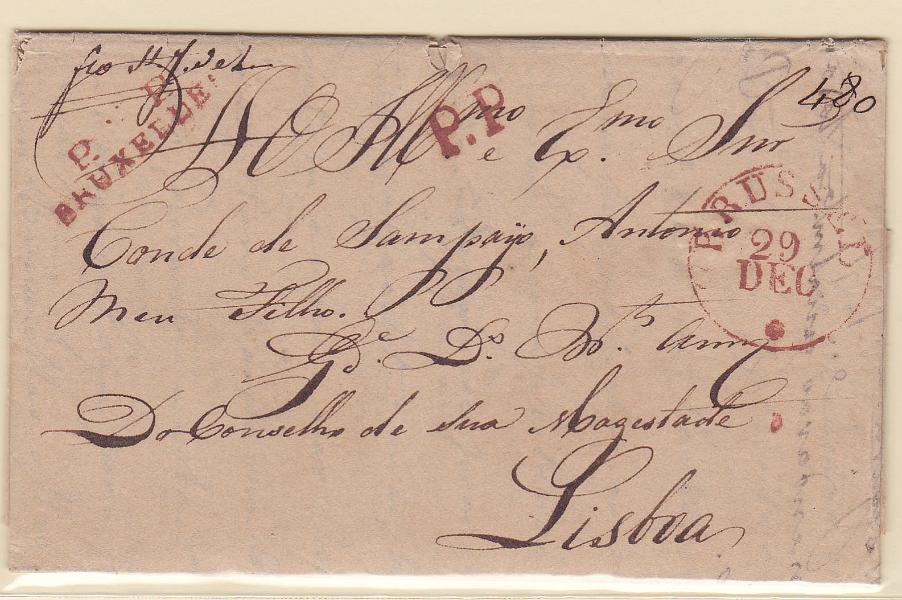 480
P. P.
BRUXELLE
P.P
Ao Illmo e Ex.mo Snr
BRUSSEL
29
DEC
Conde de Sampayo, Antonio
Meu Filho.
Gde. Ds. ms. anns
Do Conselho de Sua Magestade
Lisboa